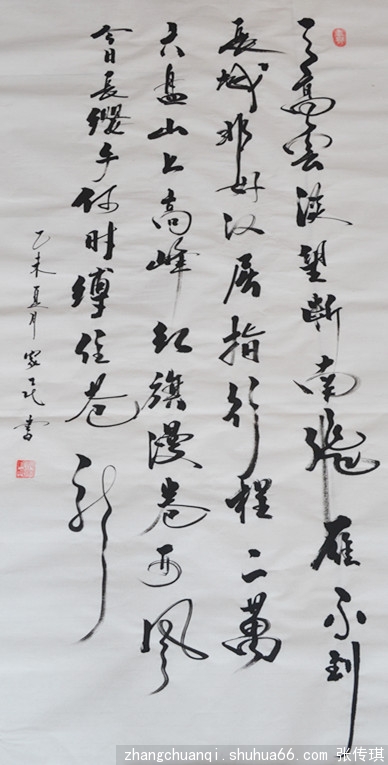 天高雲淡望断南飛雁不到
長城非好汉屈指行程二萬
六盘山上高峰红旗漫卷西風
今日長纓在手何时縛住苍
龍
乙未夏月家琪書
zhangchuanqi.shuhua66.com 张传琪